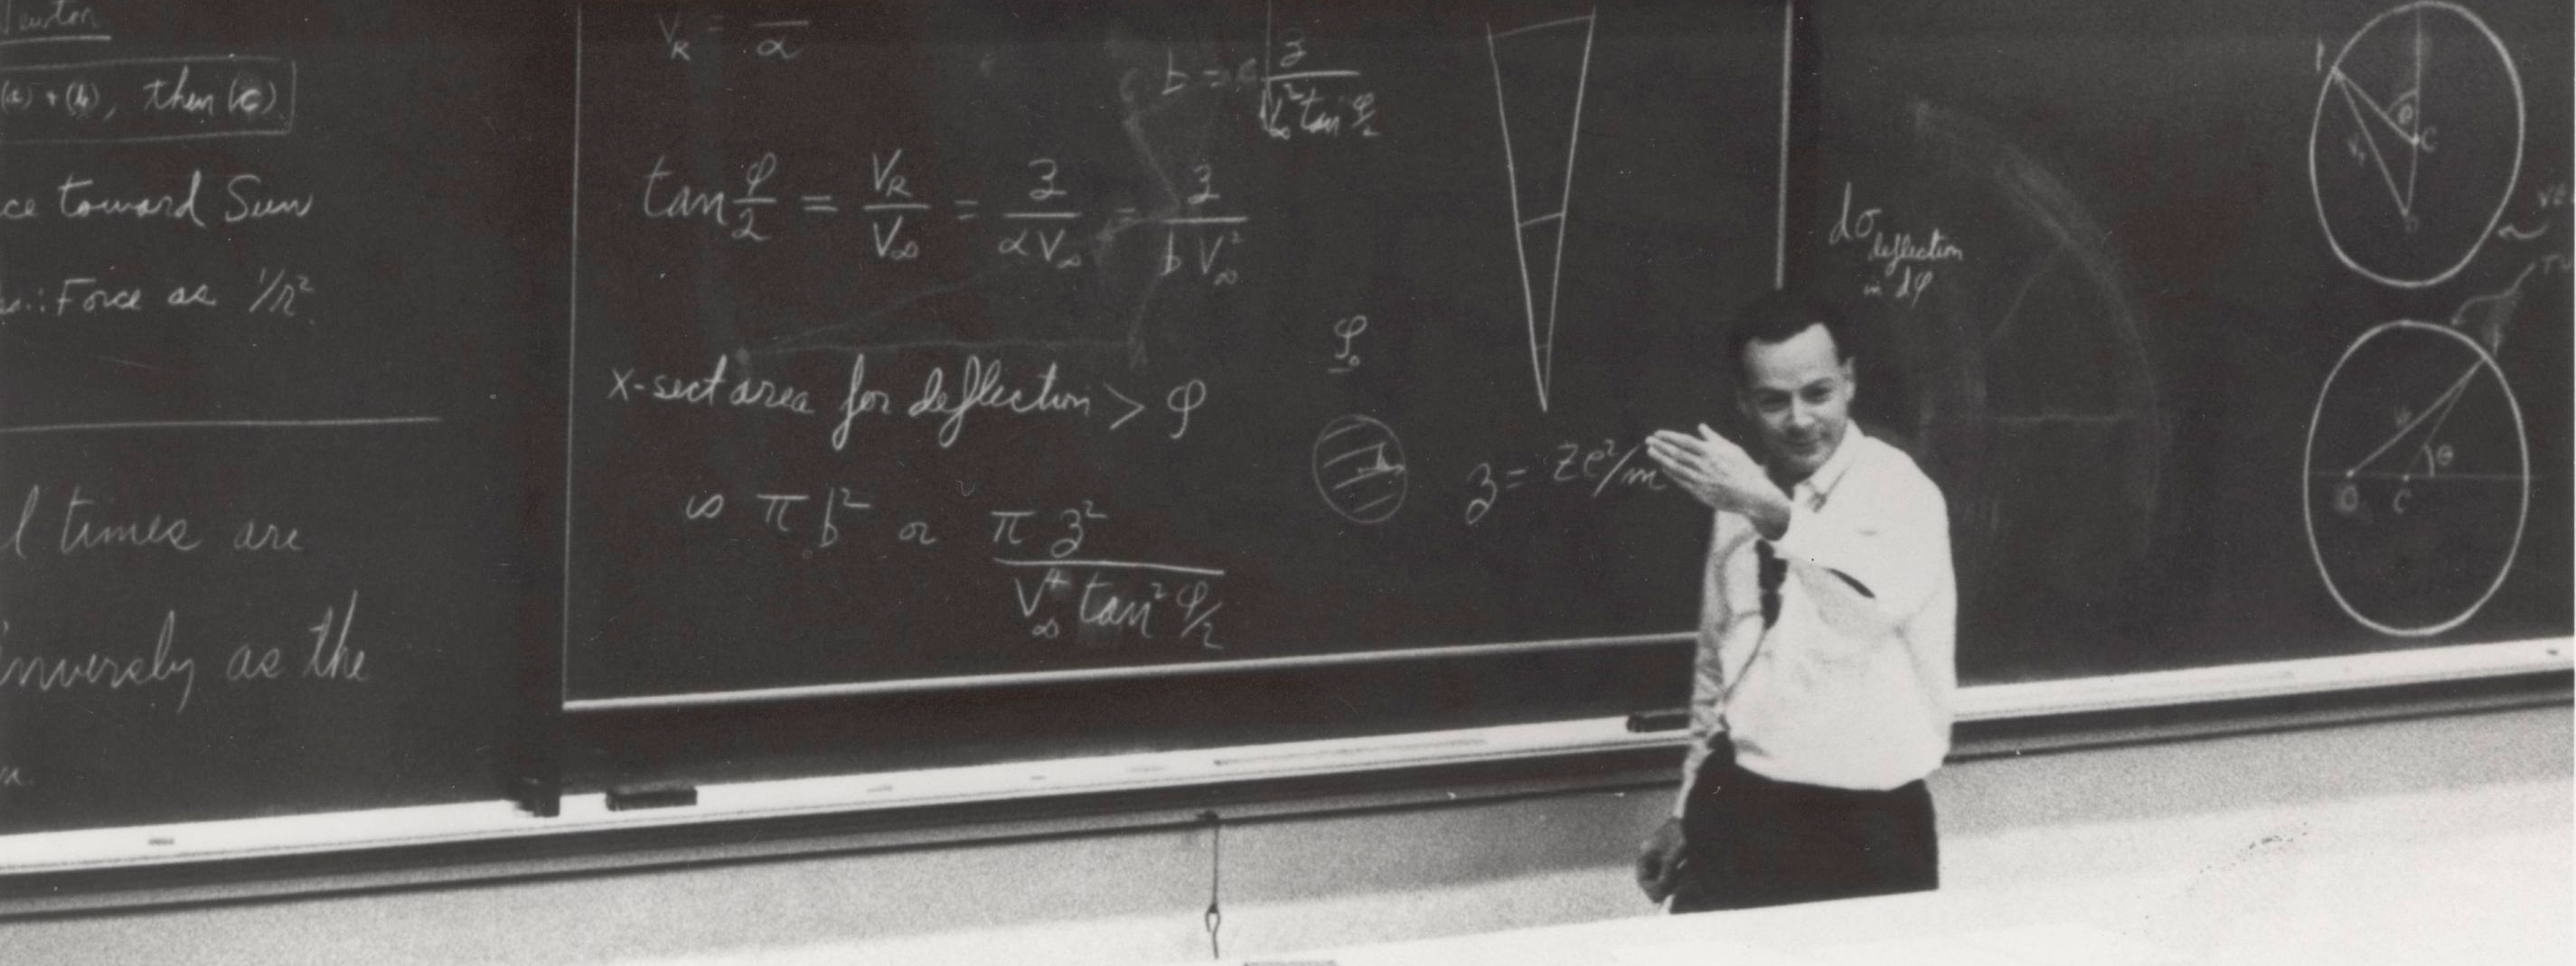 Newton
(a) + (b), then (c)
ce toward Sun
∴ Force as 1/R²
l times are
inversely as the
V_R = /α
b = z/(V_∞² tan φ/2)
tan φ/2 = V_R/V_∞ = z/(α V_∞) = z/(b V_∞²)
x-sect area for deflection > φ
is π b² or π z²/(V_∞⁴ tan² φ/2)
φ₀
z = Ze²/m
dσ
deflection
in dφ
φ
C
V
θ
O C